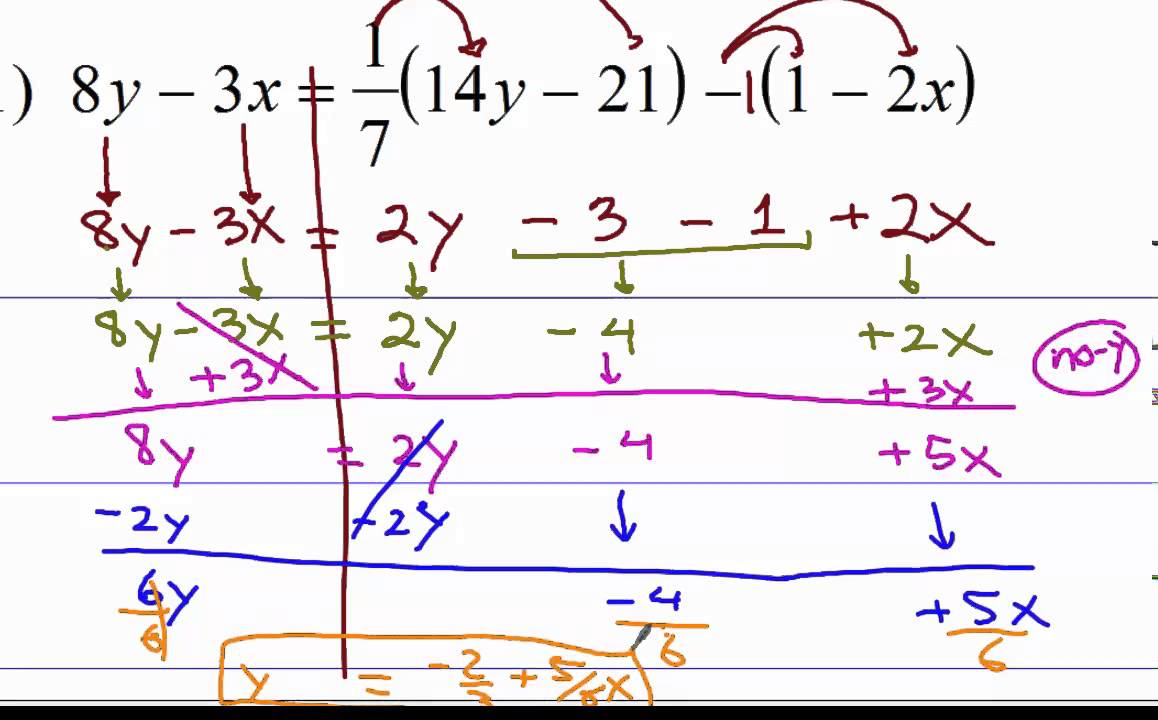 1) 8y − 3x = 1/7 (14y − 21) − 1(1 − 2x)
8y − 3x = 2y − 3 − 1 + 2x
8y − 3x = 2y − 4 + 2x
no-y
+3x +3x
8y = 2y − 4 + 5x
−2y −2y
6y/6 −4/6 +5x/6
y = −2/3 + 5/6x